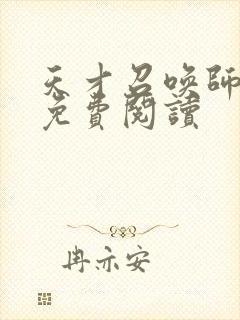 天才召喚師
免費閱讀
冉亦安